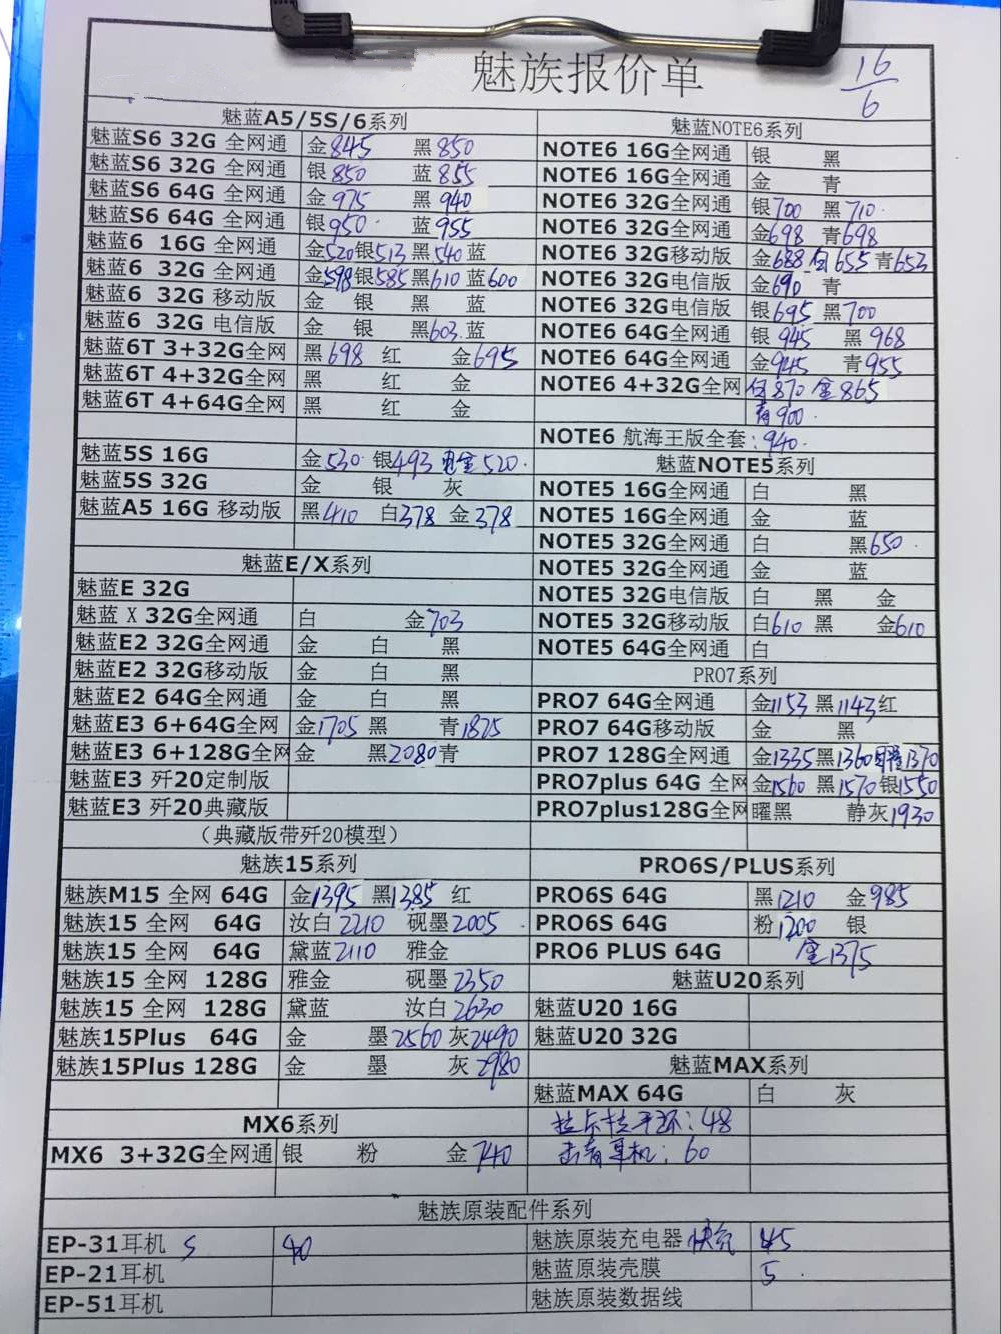 魅族报价单
16/6
魅蓝A5/5S/6系列
魅蓝S6 32G 全网通 金845 黑850
魅蓝S6 32G 全网通 银850 蓝855
魅蓝S6 64G 全网通 金975 黑940
魅蓝S6 64G 全网通 银950 蓝955
魅蓝6 16G 全网通 金520 银513 黑540 蓝
魅蓝6 32G 全网通 金598 银585 黑610 蓝600
魅蓝6 32G 移动版 金 银 黑 蓝
魅蓝6 32G 电信版 金 银 黑603 蓝
魅蓝6T 3+32G全网 黑698 红 金695
魅蓝6T 4+32G全网 黑 红 金
魅蓝6T 4+64G全网 黑 红 金
魅蓝5S 16G 金530 银493 520
魅蓝5S 32G 金 银 灰
魅蓝A5 16G 移动版 黑410 白378 金378
魅蓝E/X系列
魅蓝E 32G
魅蓝 X 32G全网通 白 金703
魅蓝E2 32G全网通 金 白 黑
魅蓝E2 32G移动版 金 白 黑
魅蓝E2 64G全网通 金 白 黑
魅蓝E3 6+64G全网 金1705 黑 青1825
魅蓝E3 6+128G全网 金 黑2080 青
魅蓝E3 歼20定制版
魅蓝E3 歼20典藏版
（典藏版带歼20模型）
魅族15系列
魅族M15 全网 64G 金1395 黑1385 红
魅族15 全网 64G 汝白2210 砚墨2005
魅族15 全网 64G 黛蓝2110 雅金
魅族15 全网 128G 雅金 砚墨2350
魅族15 全网 128G 黛蓝 汝白2630
魅族15Plus 64G 金 墨2560 灰2490
魅族15Plus 128G 金 墨 灰2980
MX6系列
MX6 3+32G全网通 银 粉 金740
魅蓝NOTE6系列
NOTE6 16G全网通 银 黑
NOTE6 16G全网通 金 青
NOTE6 32G全网通 银700 黑710
NOTE6 32G全网通 金698 青698
NOTE6 32G移动版 金688 银655 青653
NOTE6 32G电信版 金690 青
NOTE6 32G电信版 银695 黑700
NOTE6 64G全网通 银945 黑968
NOTE6 64G全网通 金945 青955
NOTE6 4+32G全网 870 金865
青900
NOTE6 航海王版全套:940
魅蓝NOTE5系列
NOTE5 16G全网通 白 黑
NOTE5 16G全网通 金 蓝
NOTE5 32G全网通 白 黑650
NOTE5 32G全网通 金 蓝
NOTE5 32G电信版 白 黑 金
NOTE5 32G移动版 白610 黑 金610
NOTE5 64G全网通 白
PRO7系列
PRO7 64G全网通 金1153 黑1143 红
PRO7 64G移动版 金 黑
PRO7 128G全网通 金1335 黑1360 1370
PRO7plus 64G 全网 金1560 黑1570 银1550
PRO7plus128G全网 曜黑 静灰1930
PRO6S/PLUS系列
PRO6S 64G 黑1210 金985
PRO6S 64G 粉1200 银
PRO6 PLUS 64G 金1375
魅蓝U20系列
魅蓝U20 16G
魅蓝U20 32G
魅蓝MAX系列
魅蓝MAX 64G 白 灰
拉卡拉手环:48
耳机:60
魅族原装配件系列
EP-31耳机 S 40
EP-21耳机
EP-51耳机
魅族原装充电器 快充 45
魅蓝原装壳膜 5
魅族原装数据线